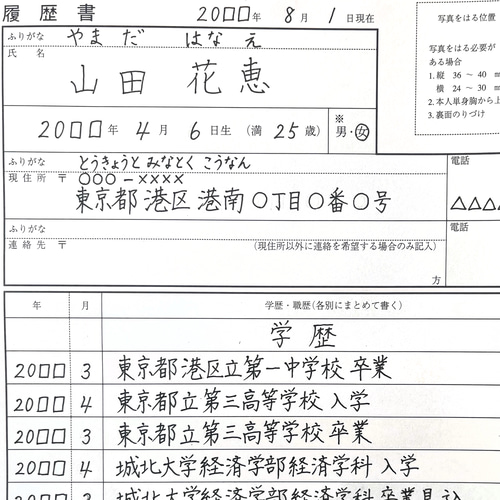 履歴書 20□□年 8月 1日現在
ふりがな やまだ はなえ
氏名
山田 花恵
20□□年 4月 6日生 (満 25歳) ※ 男・女
写真をはる位置
写真をはる必要が
ある場合
1. 縦 36 ~ 40 m
横 24 ~ 30 m
2. 本人単身胸から上
3. 裏面のりづけ
ふりがな とうきょうと みなとく こうなん
現住所 〒 ○○○-××××
東京都 港区 港南 ○丁目○番○号
電話
△△△
ふりがな
連絡先 〒 (現住所以外に連絡を希望する場合のみ記入)
方
電話
年 月 学歴・職歴(各別にまとめて書く)
学歴
20□□ 3 東京都港区立第一中学校 卒業
20□□ 4 東京都立第三高等学校 入学
20□□ 3 東京都立第三高等学校 卒業
20□□ 4 城北大学経済学部経済学科 入学
20□□ 3 城北大学経済学部経済学科 卒業見込